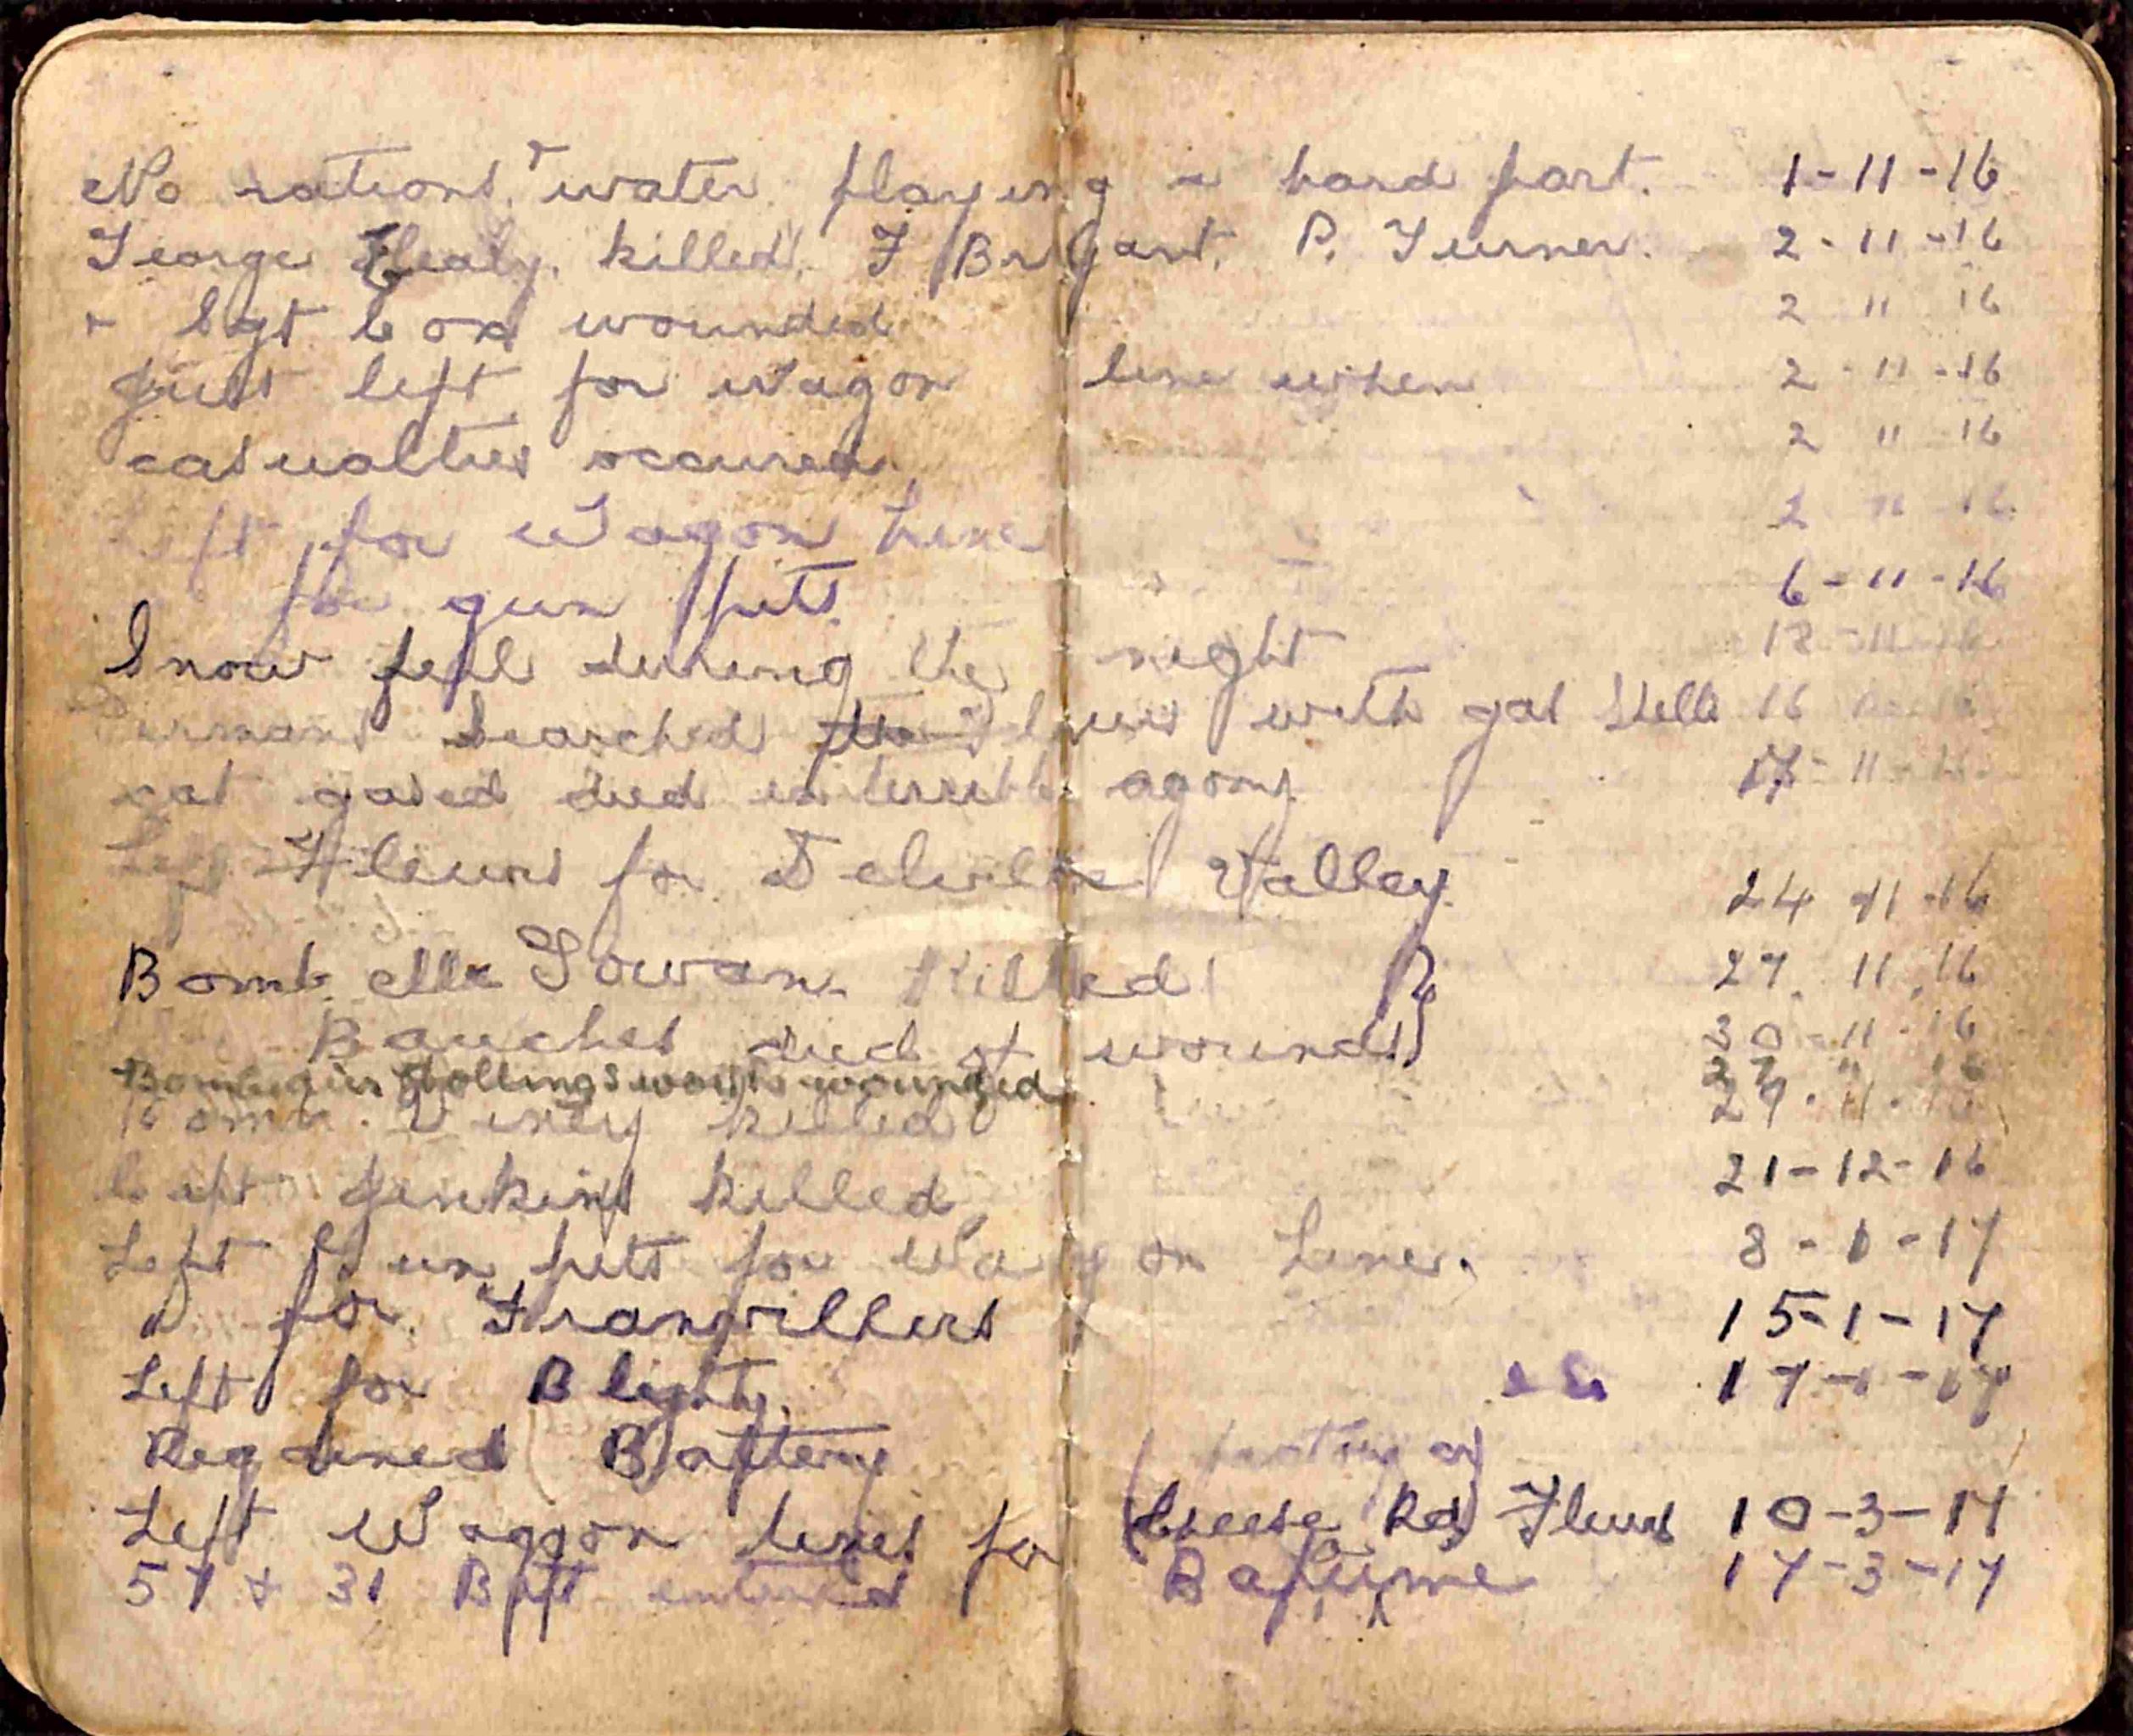 No rations & water playing a hard part. 1-11-16
George Healy. killed. F Bryant. P. Turner. 2-11-16
+ Sgt Cox wounded 2 11 16
Just left for Wagon line when 2-11-16
casualties occured. 2 11 16
Left for Wagon Line 2 11 16
for gun pits. 6-11-16
Snow fell during the night 12-11-16
Germans searched Fleurs with gas Shells 16
cat gased died in terrible agony 17-11-16
Left Fleurs for Delville Valley. 24-11-16
Bomb. Mc Gowan. Killed 27. 11. 16
Bauches died of wounds 30-11-16
Bombadier Hollingsworth wounded 27 " 16
Bomb. killed 29-11-16
Capt Jenkins killed, 21-12-16
Left Gun pits for Wagon Lines. 8-1-17
" for Franvillers 15-1-17
Left for Blighty. 17-1-17
Regained Battery
Left Waggon lines for (Cheese Rd) Fleurs 10-3-17
57 & 31 Batt entered Bapaume 17-3-17